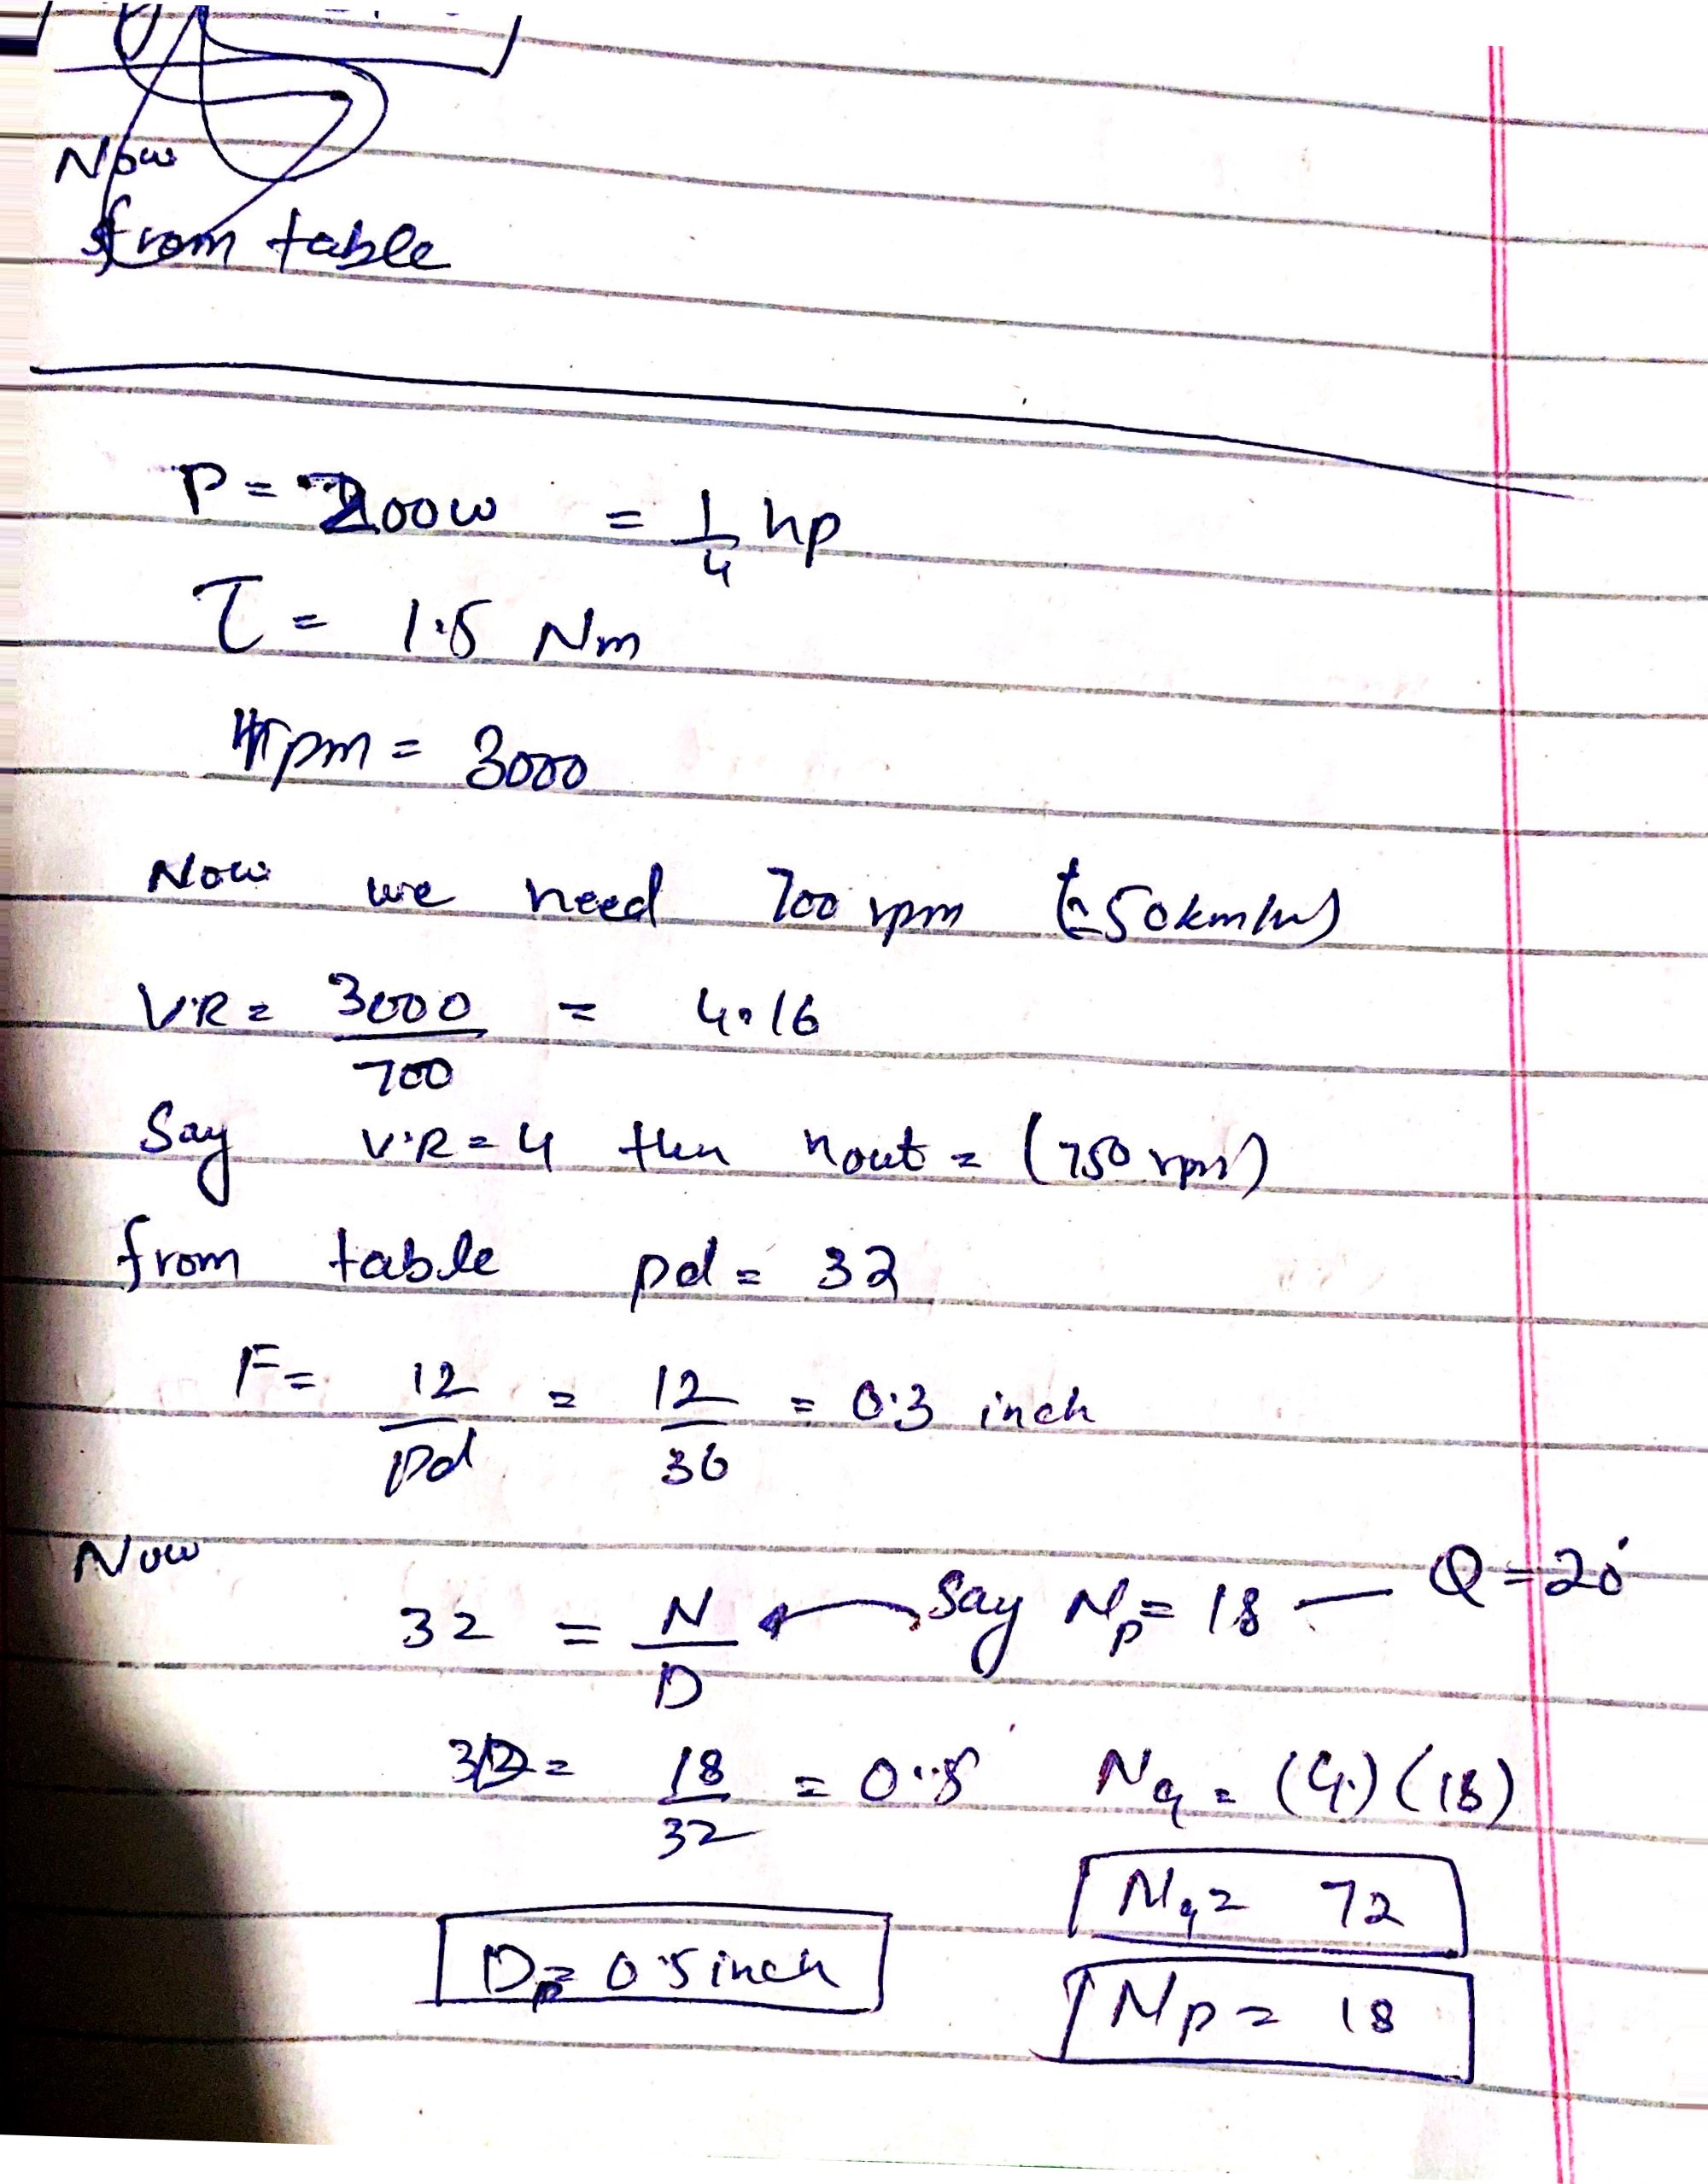 Now
from table
P = 200w = 1/4 hp
τ = 1.5 Nm
rpm = 3000
Now we need 700 rpm (≈50km/hr)
V.R = 3000/700 = 4.16
Say V.R = 4 then nout = (750 rpm)
from table pd = 32
F = 12/pd = 12/36 = 0.3 inch
Now
32 = N/D ← Say Np = 18 — Q = 20°
= 18/32 = 0.5 Ng = (4)(18)
Ng = 72
Dp = 0.5 inch
Np = 18